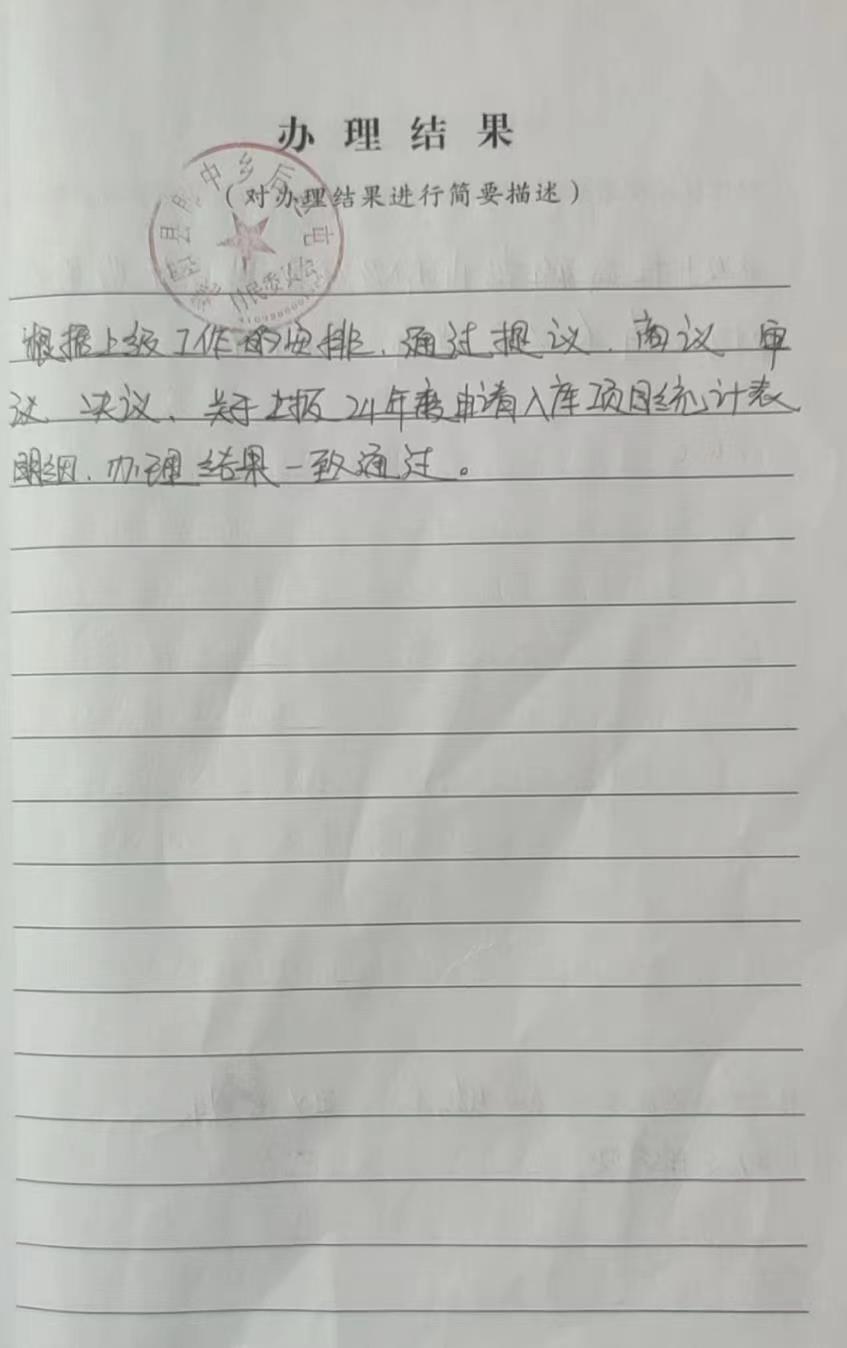 办理结果
（对办理结果进行简要描述）
中乡后
村民委员会
根据上级工作的安排、通过提议、商议 审
议 决议、关于上报24年度申请入库项目统计表
明细、办理结果一致通过。